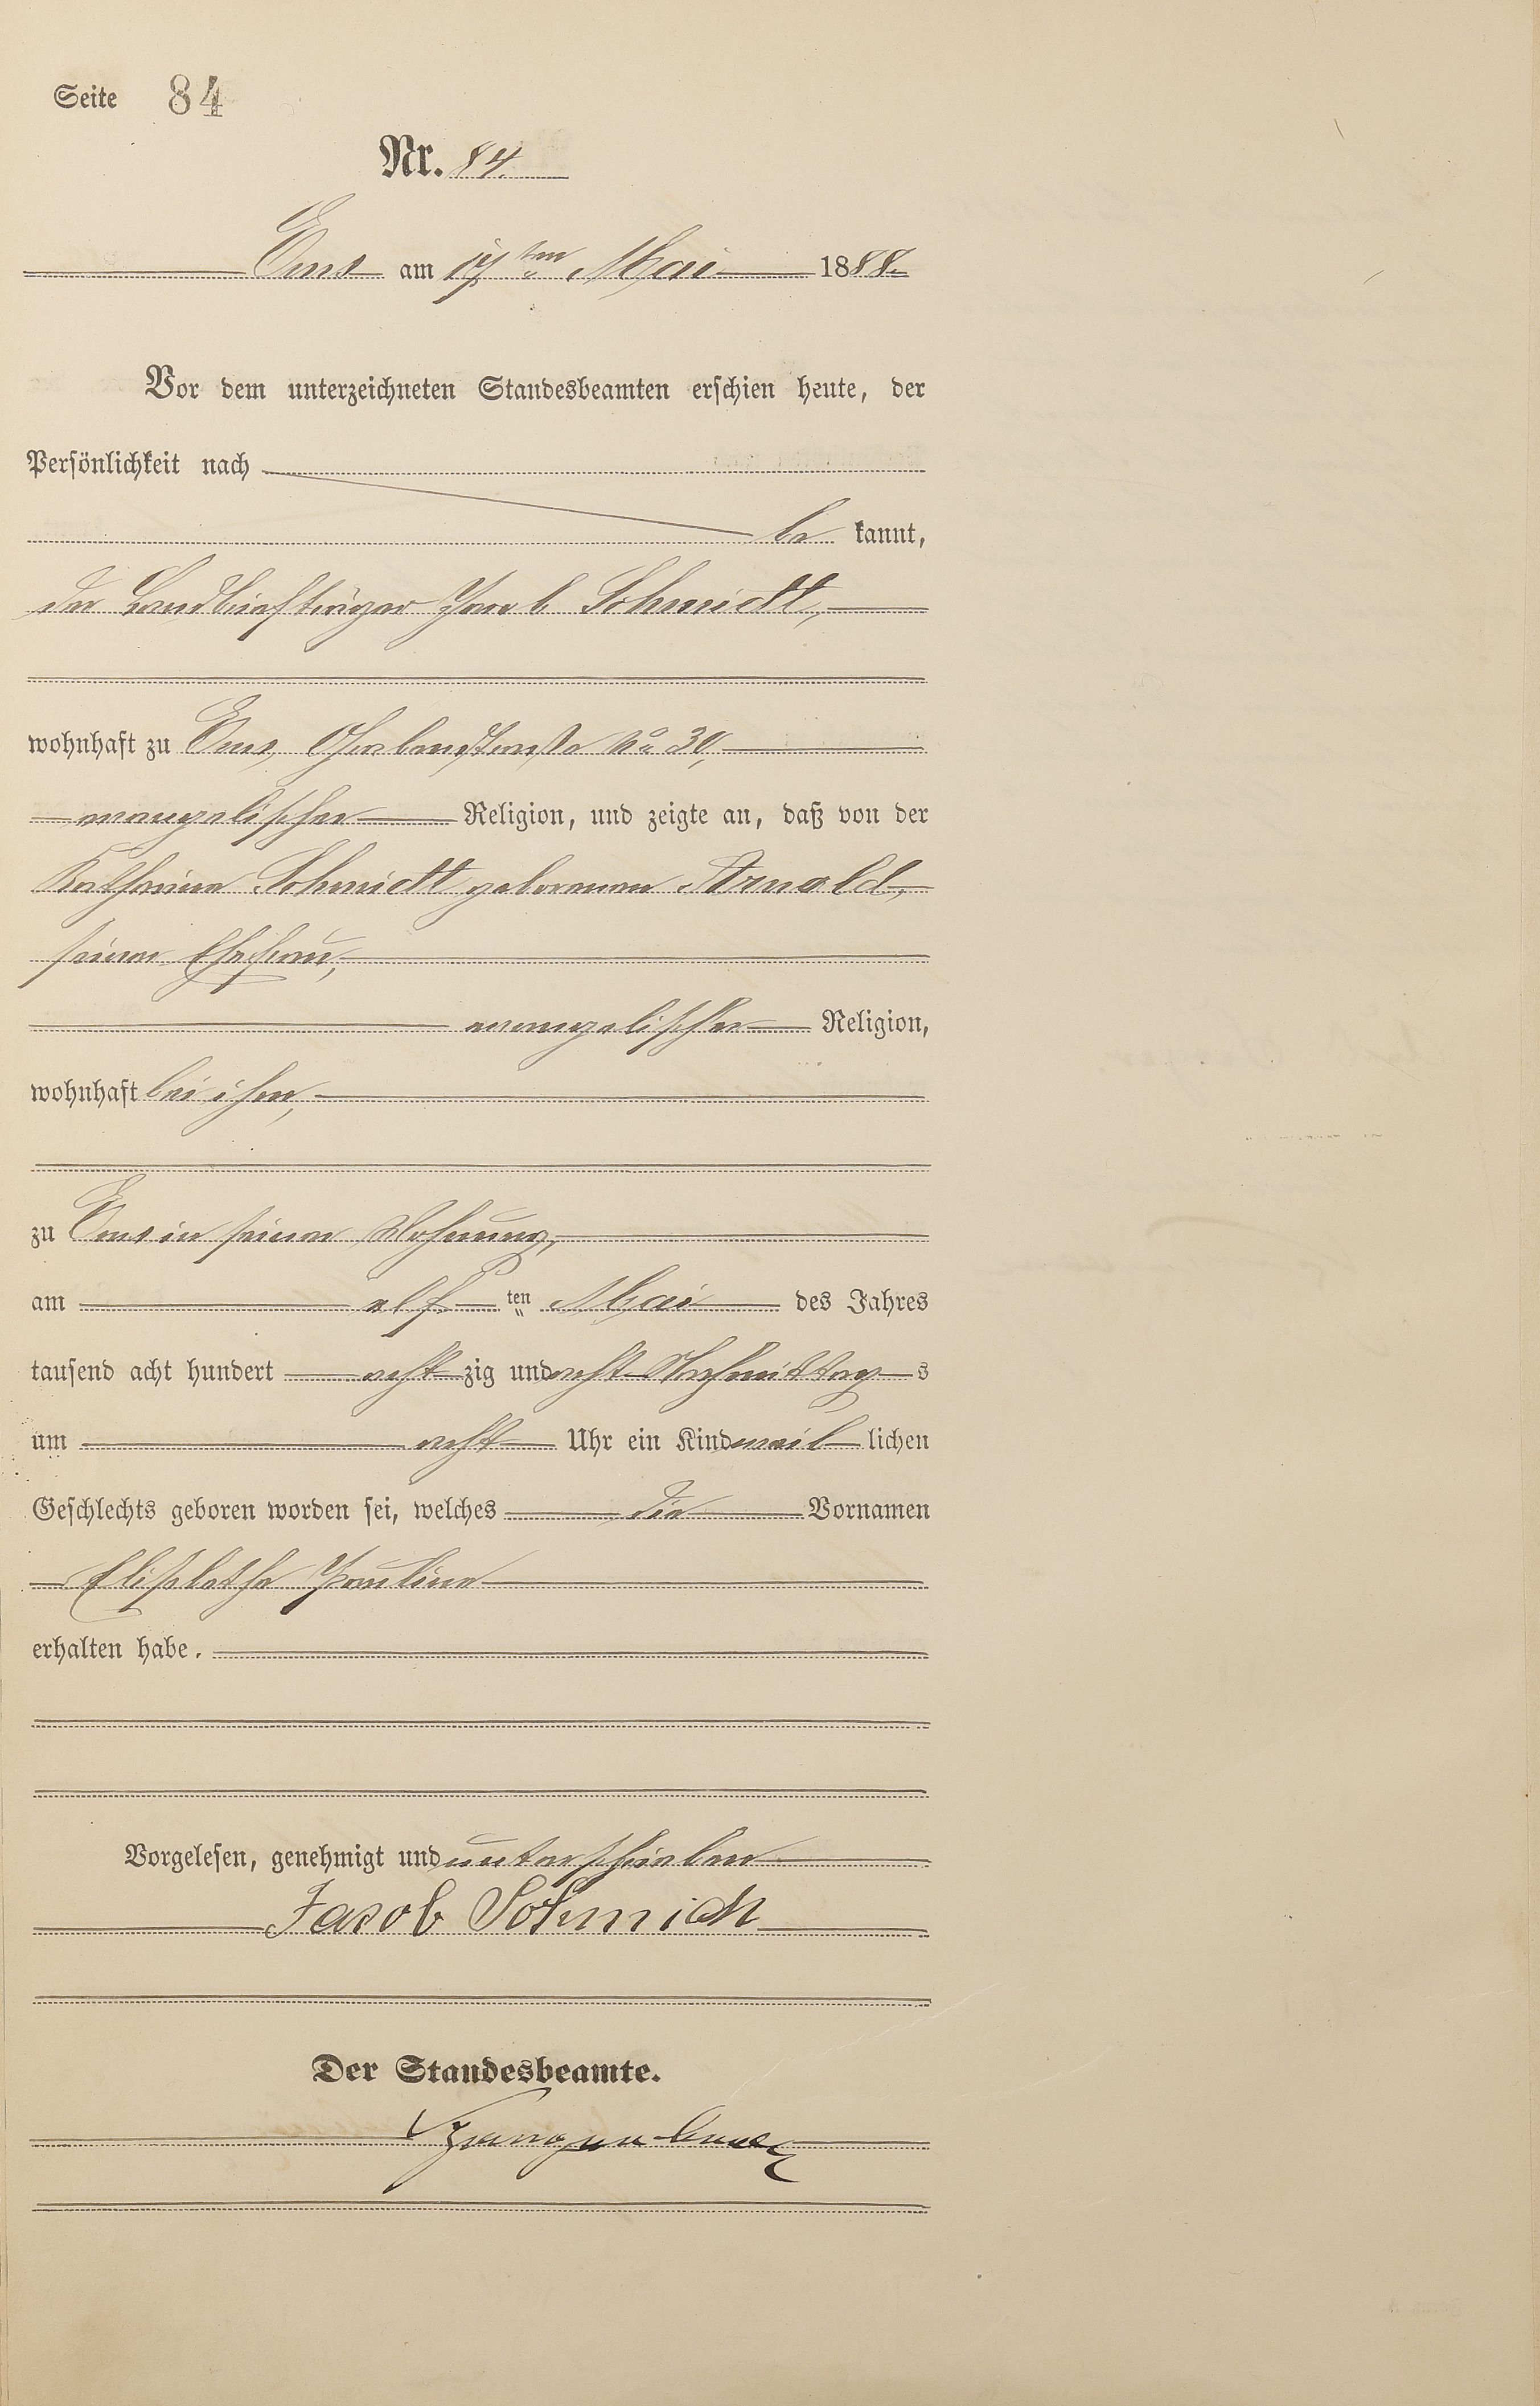 Seite 84
Nr. 84.
Ems am 17ten Mai 1888.
Vor dem unterzeichneten Standesbeamten erschien heute, der
Persönlichkeit nach
be kannt,
der Landbriefträger Jacob Schmidt,
wohnhaft zu Ems, No 30,
evangelischer Religion, und zeigte an, daß von der
Katharina Schmidt geborenen Arnold,
seiner Ehefrau,
evangelischer Religion,
wohnhaft bei ihm,
zu Ems in seiner Wohnung,
am elf ten Mai des Jahres
tausend acht hundert acht zig und acht Nachmittag s
um acht Uhr ein Kind weib lichen
Geschlechts geboren worden sei, welches die Vornamen
Elisabetha Pauline
erhalten habe.
Vorgelesen, genehmigt und unterschrieben
Jacob Schmidt
Der Standesbeamte.